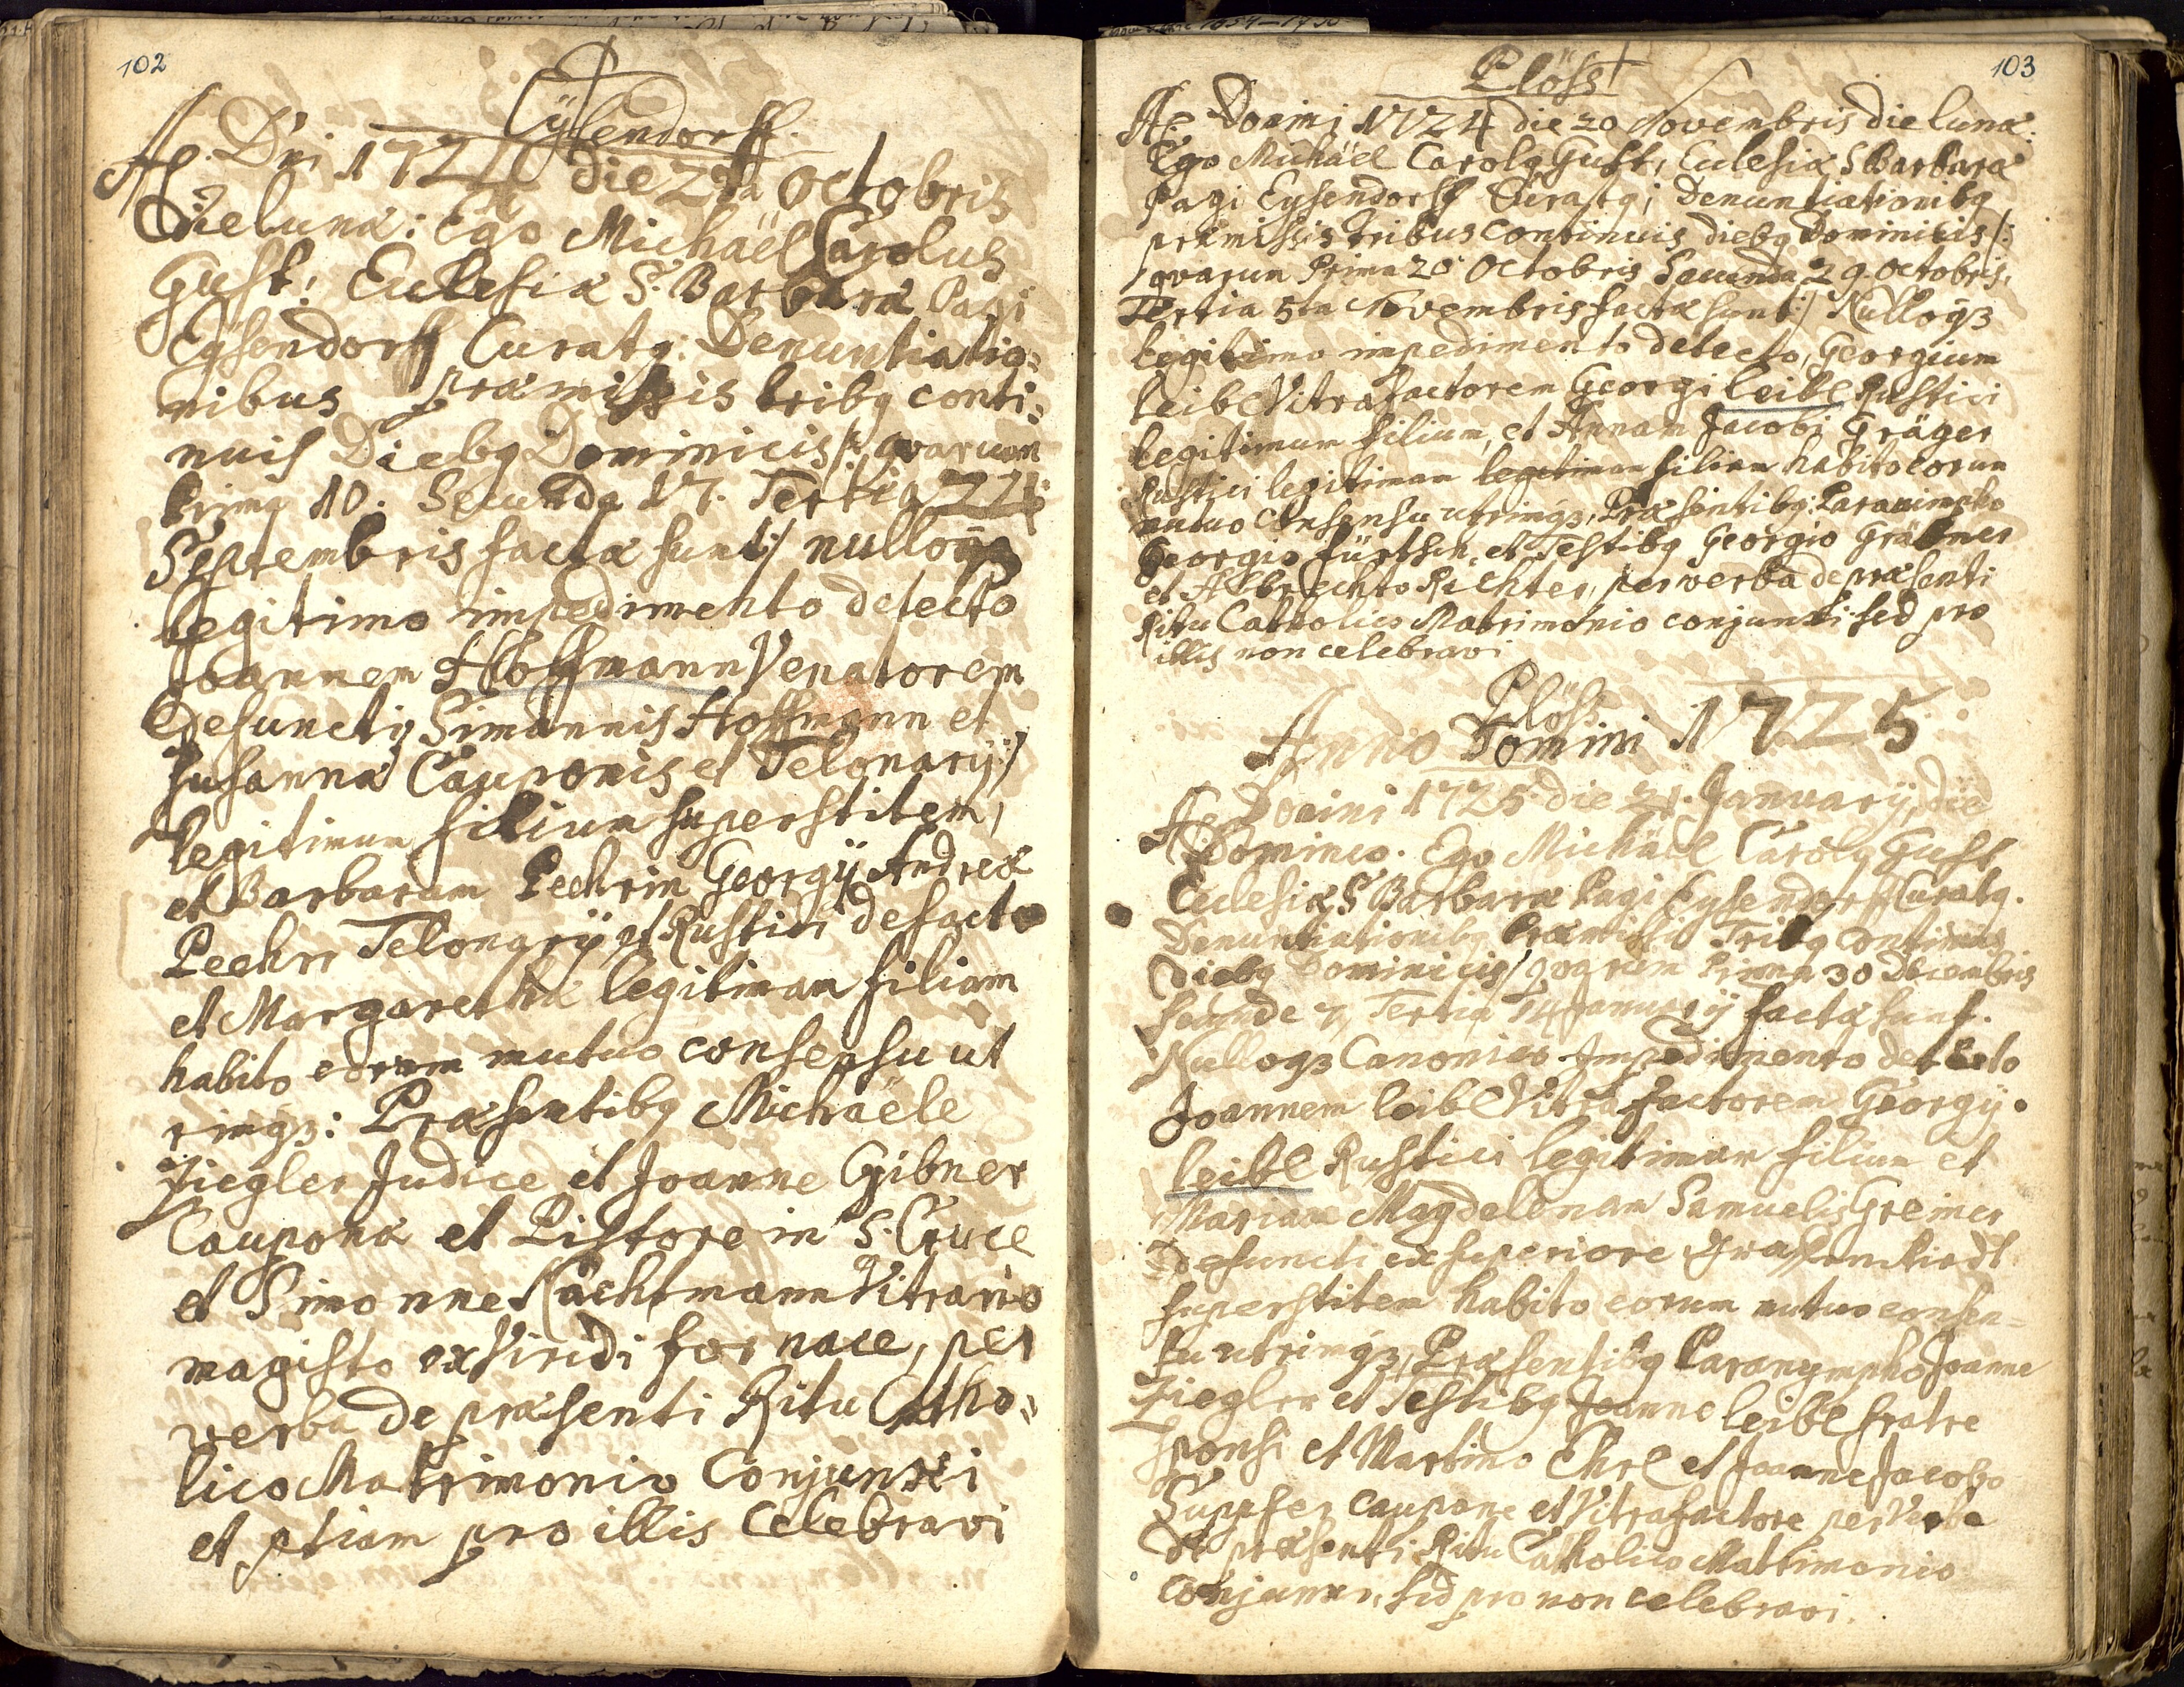 102
Eÿsendorff.
Aō. Dni 1724 die 2da Octobris
Die lunæ: Ego Michaël Carolus
Gust: Ecclesiæ S. Barbaræ Pagi
Eÿsendorff Curatq: Denuntiatio=
nibus præmissis tribq conti=
nuis Diebq Dominicis /: qvarum
prima 10. Secunda 17. Tertia 24.
Septembris factæ sunt :/ nulloqз
legitimo impedimento detecto
Joannem Hoffmann Venatorem
Defuncti Simonnis Hoffmann et
Susannæ Cauponis et Telonarÿ :/
legitimum filium superstitem,
et Barbaram Pechrin Georgÿ Andreæ
Pechrr Telonarÿ et Rustici de facto
et Margarethæ legitimam filiam
habito eorum mutuo consensu ut
rinqз: Præsentibq Michaële
Ziegler Judice et Joanne Gibner
Caupona et Pistore in S. Cruce
et Simonne Kachtmann Vitrario
magisto ex Viridi fornace, per
verba de præsenti Ritu Catho=
lico Matrimonio Conjunxi
et etiam pro illis Celebravi
103
Plöss
Aō. Domini 1724 die 20 Novembris die lunæ:
Ego Michäel Carolq Gust, Eclesiæ S Barbaræ
Pagi Eysendorff Curatq; Denuntiationibq
præmissis tribus continuis diebq Dominicis /:
qvarum Prima 20 Octobris Secunda 29. Octobris,
Tertia 5ta Novembris factæ sunt :/ Nulloqз
legitimo impedimento detecto, Georgium
leibl Vitrafactorem Georgi leibl Rustici
legitimum filium, et Annam Jacobi Gräger
Rustici legitimam legitimam filiam habito eorum
mutuo Consensu utrinqз, Præsentibq: Paranimpho
Georgio fürtsch, et Testibq Georgio Gräbmer
et Albrechto Richter, per verba de præsenti
Ritu Catholico Matrimonio conjunxi. sed pro
illis non celebravi
Plöss
Anno Domini 1725
Aō Domini 1725 die 21. Januarÿ, die
Dominco. Ego Michäel Carolq Gust
Eclesiæ S Barbaræ Pagi Eysendorff Curatq.
Denuntiationibq Præmissis Tribq Continuis
diebq Dominicis / Qvarum Prima 30 Decembris
Secunde 7, Tertia 14 Januarÿ factæ sunt.
Nulloqз Canonico Impedimento detecto
Joannem leibl Vitrafactorem Georgÿ.
leibl Rustici legitimum filium et
Mariam Magdelenam Samuelis Greiner
Defuncti ex superiore
superstitem habito eorum mutuo consen=
su utrinqз, Præsentibq Paranympho Joanne
Ziegler et Testibq Joanne leibl fratre
sponsi et Martino Ehrl et Joanne Jacobo
Suppser Caupone et Vitrafactore per Verba
de præsenti Ritu Catholico Matrimonio
Conjunxi, sed pro non celebravi.